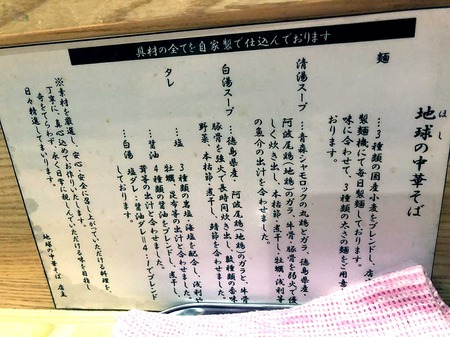 具材の全てを自家製で仕込んでおります
地球の中華そば
ほし
麺
…3種類の国産小麦をブレンドし、店
製麺機にて毎日製麺しております。
味に合わせて、3種類の太さの麺をご用意
おります。
清湯スープ
…青森シャモロックの丸鶏とガラ、徳島県産・
阿波尾鶏(地鶏)のガラ、牛骨・豚骨を弱火で優
しく炊き出し、本枯節・煮干し・牡蠣・浅利等
の魚介の出汁を合わせました。
白湯スープ
…徳島県産・阿波尾鶏(地鶏)のガラと、牛骨
豚骨を強火で長時間炊き出し、数種類の香味
野菜、本枯節・煮干し・鯖節を合わせました。
タレ
…塩
3種類の岩塩・海塩を配合し、浅利や
牡蠣、昆布等の出汁と合わせました。
…醤油
4種類の醤油をブレンドし、煮干し、
茸等の出汁と合わせました。
…白湯
塩ダレ・醤油ダレ=4:1でブレンド
しております。
※素材を厳選し、安心・安全に召し上がっていただける料理を、
丁寧に、真心込めてお作りいたします。
奇をてらわず、永く日常に親しんでいただける味を目指し
日々精進してまいります。
地球の中華そば 店主